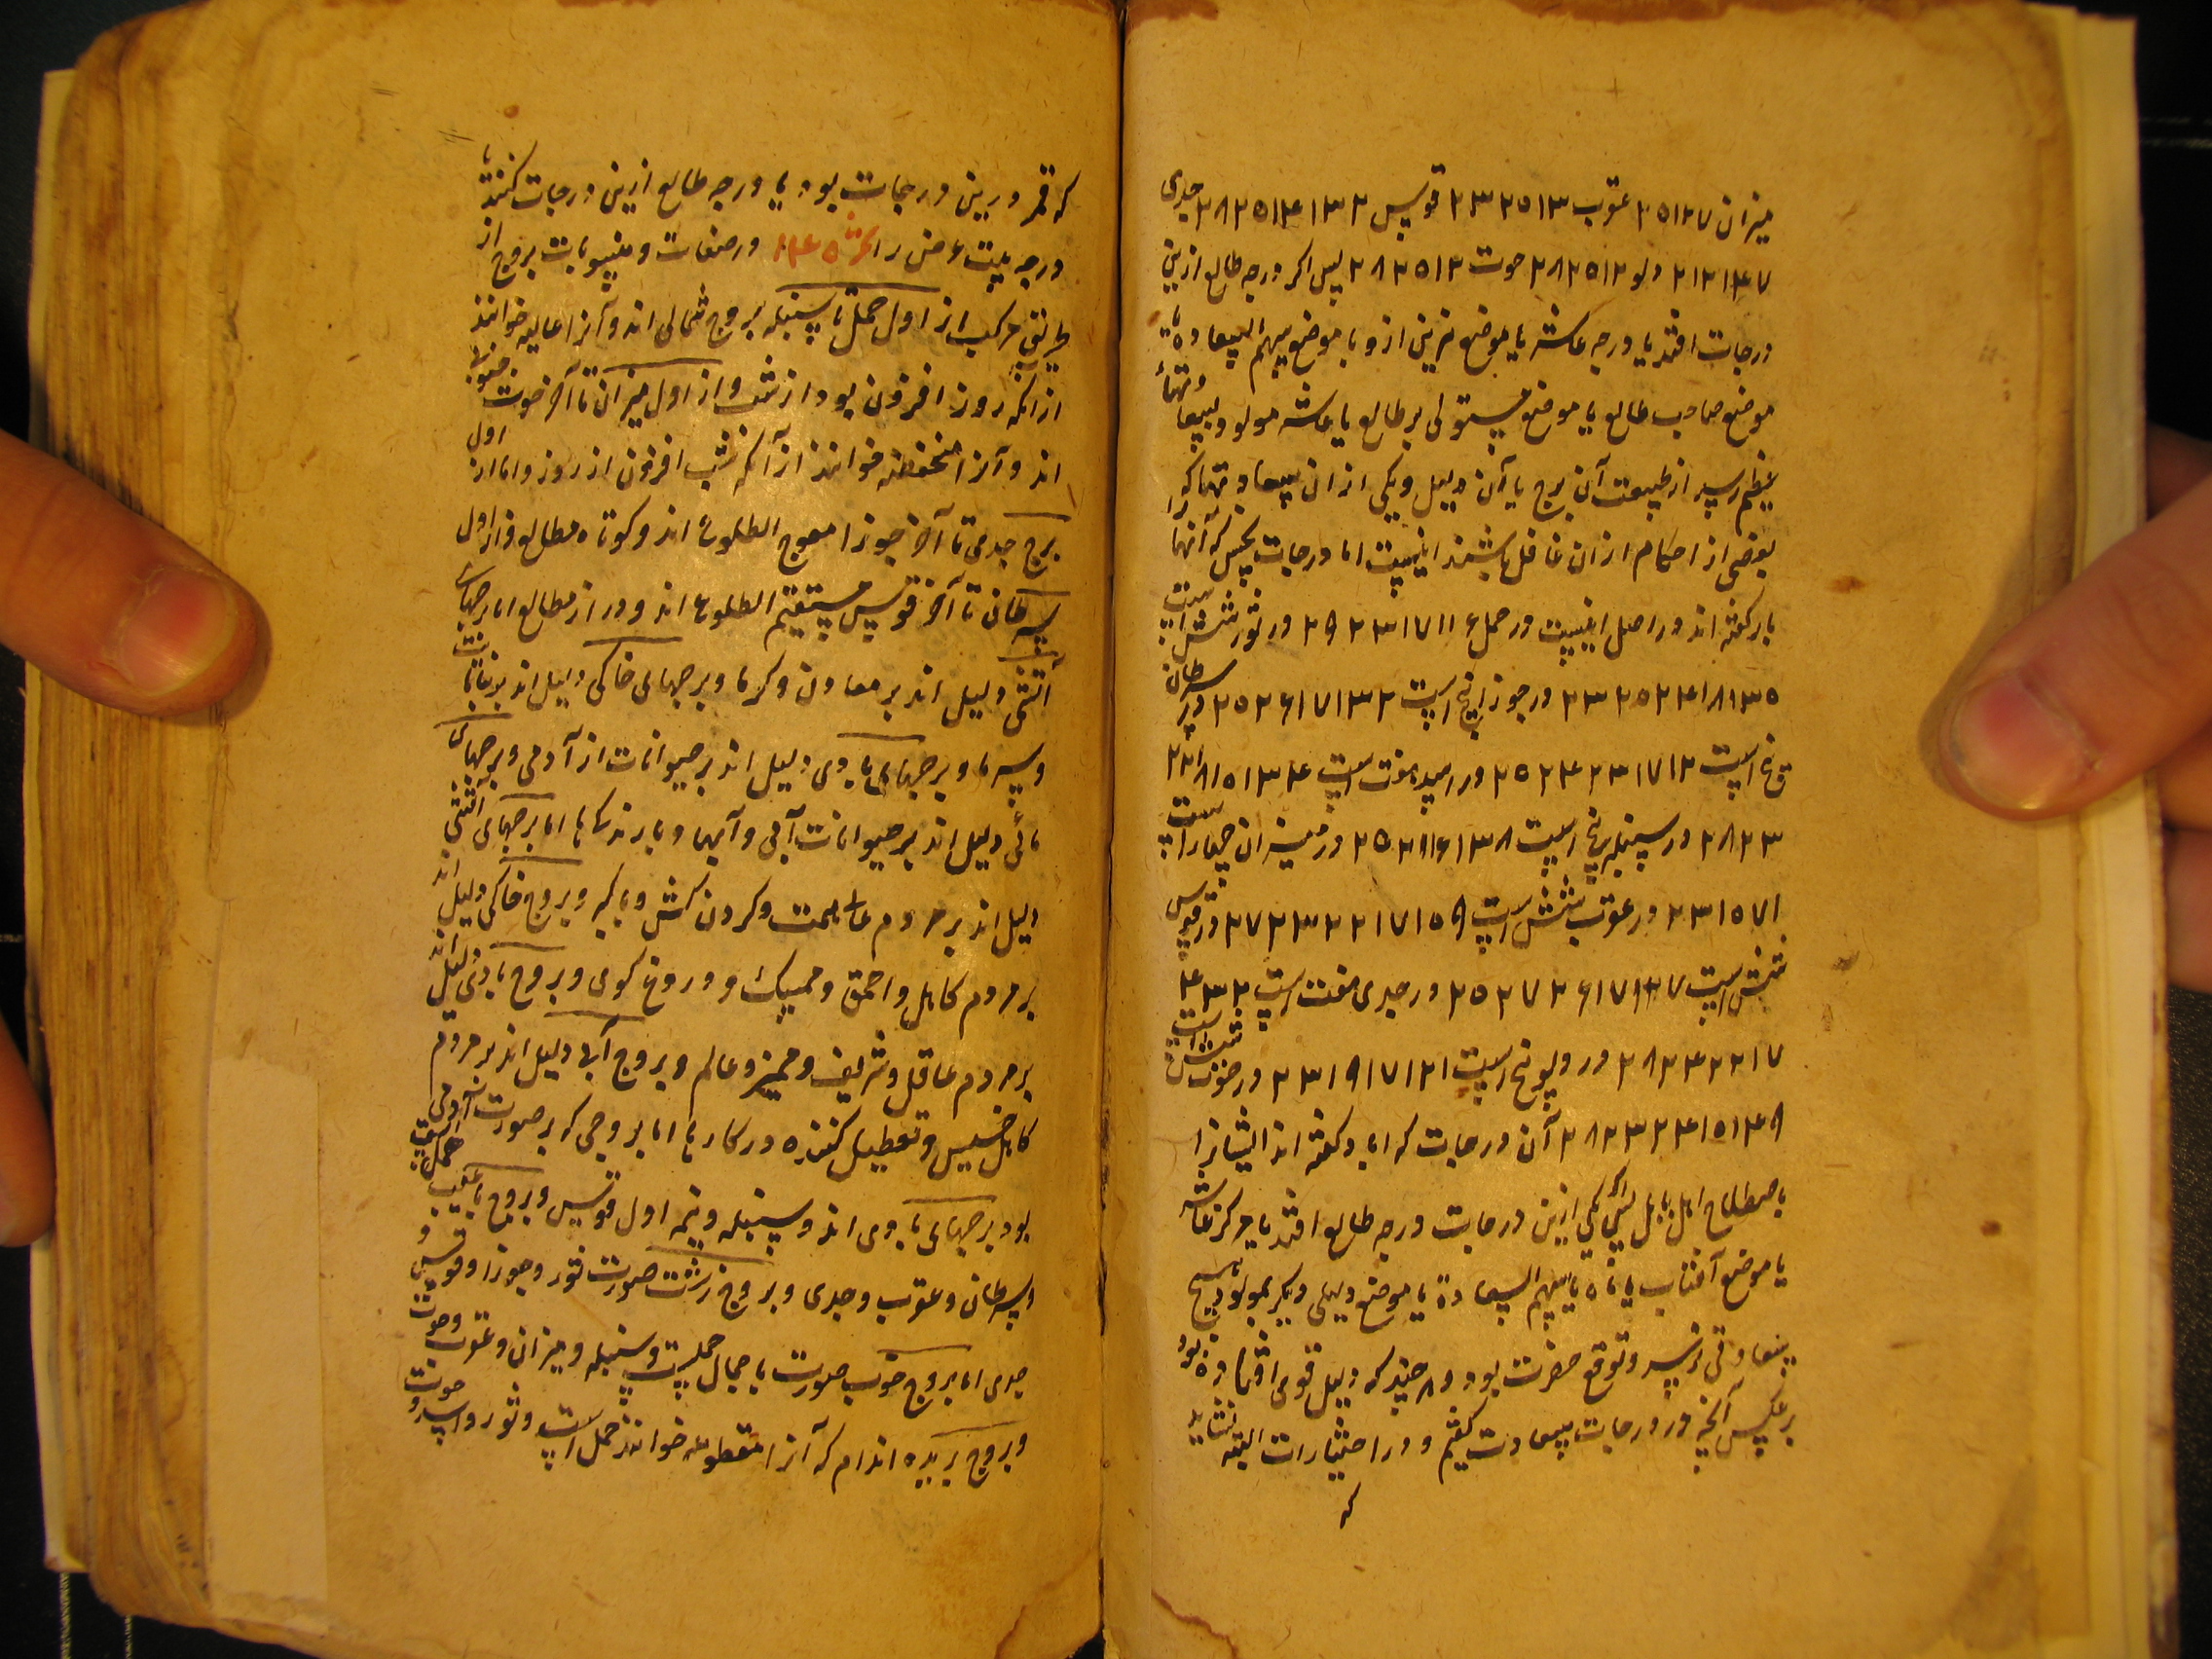 میزان ۲۵۱۲۷ عقرب ۲۳۲۵۱۳ قوس ۲۸۲۵۱۴۱۳۲ جدی
۲۱۲۱۴۷ دلو ۲۸۲۵۱۲ حوت ۲۸۲۵۱۲ پس اکر درجه طالع ازین
درجات افتد یا درجه عاشر یا موضع نیرین ازو یا موضع سهم السعاده یا
موضع صاحب طالع یا موضع مستولی بر طالع یا عاشر مولود سعادتهاء
عظیم رسد از طبیعت آن برج یا آن دلیل و یکی از آن سعادتها که
بعضی از احکام از آن غافل باشند اینست اما درجات نحس که آنها را
بار کفته اند در اصل اینست در حمل ۲۹۲۳۱۷۱۱۶ در ثور شش است
۲۳۲۵۲۴۱۸۱۳۵ در جوزا پنج است ۲۵۲۶۱۷۱۳۲ در سرطان
پنج است ۲۵۲۴۲۳۱۷۱۲ در اسد هفت است
۲۸۲۳ در سنبله پنج است ۲۵۲۱۱۶۱۳۸ در میزان چهار است
۲۳۱۵۷۱ در عقرب شش است ۲۷۲۳۲۲۱۷۱۵۹ در قوس
شش است ۲۵۲۷۲۶۱۷۱۲۷ در جدی هفت است ۴۳۲
۲۸۲۴۲۲۱۷ در دلو پنج است ۲۳۱۹۱۷۱۲۱ در حوت شش است
۲۸۲۳۲۴۱۵۱۴۹ آن درجات که اباد کفته اند ایشانرا
باصطلاح اهل بابل اکر یکی ازین درجات درجه طالع افتد یا مرکز عاشر
یا موضع آفتاب یا ماه یا سهم السعادة یا موضع دلیلی دیکر بمولود هیچ
سعادتی نرسد و توقع مضرت بود و هر چند که دلیل قوی افتاده بود
بر عکس آنچه در درجات سعادت کفتیم و در اختیارات البته نشاید
که
که قمر درین درجات بود یا درجه طالع ازین درجات کنند یا
درجه بیت غرض را در صفات و منسوبات بروج از
طریق مرکب از اول حمل تا سنبله بروج شمالی اند و آنرا عالیه خوانند
از آنکه روز افزون بود از شب و از اول میزان تا آخر حوت جنوبی
اند و آنرا منخفضه خوانند از آنکه شب افزون از روز و اما از اول
برج جدی تا آخر جوزا معوج الطلوع اند و کوتاه مطالع و از اول
سرطان تا آخر قوس مستقیم الطلوع اند و دراز مطالع اما برجهای
آتشی دلیل اند بر معادن و کرما و برجهای خاکی دلیل اند بر نباتات
و برجهای بادی دلیل اند بر حیوانات از آدمی و برجهای
مائی دلیل اند بر حیوانات آبی و آبها و بارندکیها اما برجهای آتشی
دلیل اند بر مردم عالی همت و کردن کش و با کبر و بروج خاکی دلیل اند
بر مردم کاهل و احمق و ممسک و دروغ کوی و بروج بادی دلیل اند
بر مردم عاقل و شریف و ممیز و عالم و بروج آبی دلیل اند بر مردم
کاهل خسیس و تعطیل کننده در کارها اما بروجی که بر صورت آدمی
بود برجهای بادی اند و سنبله و نیمه اول قوس و بروج با عیب حمل است
و سرطان و عقرب و جدی و بروج زشت صورت ثور و جوزا و قوس و
جدی اما بروج خوب صورت با جمال حملست و سنبله و میزان و عقرب و حوت
و بروج بریده اندام که آنرا مقطوعه خوانند حمل است و ثور و اسد و حوت